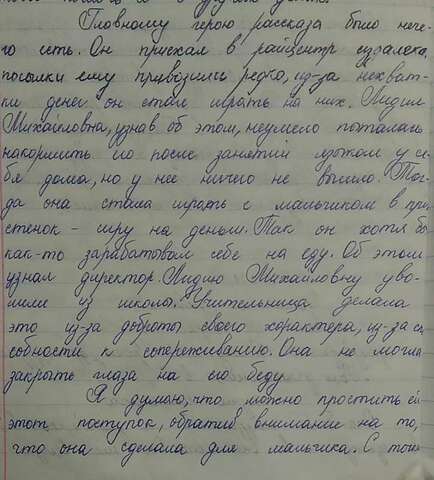 Главному герою рассказа было нече-
го есть. Он приехал в райцентр издалека,
посылки ему привозили редко, из-за нехват-
ки денег он стал играть на них. Лидия
Михайловна, узнав об этом, неумело пыталась
накормить его после занятий языком у се-
бя дома, но у неё ничего не вышло. Тог-
да она стала играть с мальчиком в при-
стенок - игру на деньги. Так он хотя бы
как-то зарабатывал себе на еду. Об этом
узнал директор. Лидию Михайловну уво-
лили из школы. Учительница делала
это из-за доброты своего характера, из-за сп
собности к сопереживанию. Она не могла
закрыть глаза на его беду.
Я думаю, что можно простить ей
этот поступок, обратив внимание на то,
что она сделала для мальчика. С той